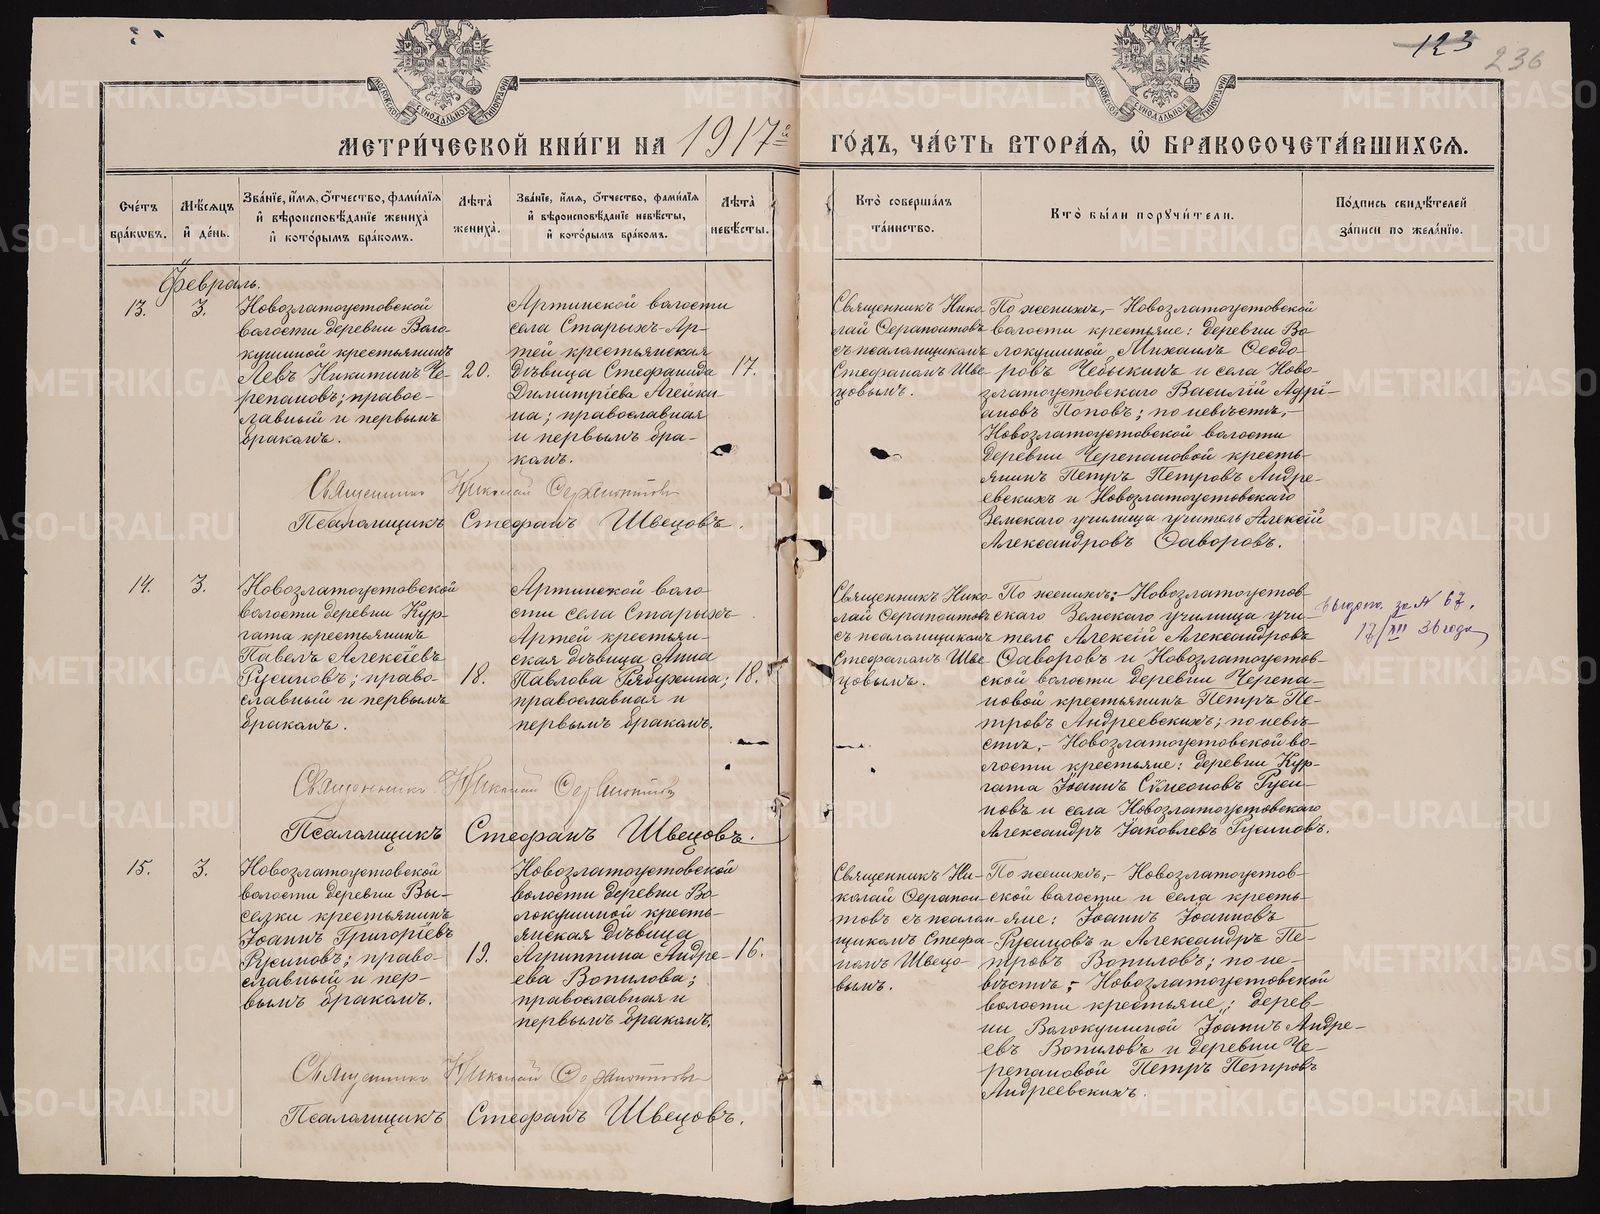 123
236
МЕТРИ́ЧЕСКОЙ КНИ́ГИ НА 1917й ГО́ДЪ, ЧА́СТЬ ВТОРА́Я, Ѡ҆ БРАКОСОЧЕТА́ВШИХСЯ.
Сче́тъ бра́ковъ.
Мѣ́сяцъ и҆ де́нь.
Зва́нїе, и҆́мя, ѻ҆́тчество, фами́лїя и҆ вѣроисповѣ́данїе жениха̀ и҆ кото́рымъ бра́комъ.
Лѣ́та жениха̀.
Зва́нїе, и҆́мя, ѻ҆́тчество, фами́лїя и҆ вѣроисповѣ́данїе невѣ́сты, и҆ кото́рымъ бра́комъ.
Лѣ́та невѣ́сты.
Кто̀ соверша́лъ та́инство.
Кто̀ бы́ли поручи́тели.
По́дпись свидѣ́телей за́писи по жела́нїю.
Февраль.
13.
3.
Новозлатоустовской
волости деревни Воло
кушиной крестьянинъ
Левъ Никитинъ Че-
репановъ; правос-
лавный и первымъ
бракомъ.
20.
Артинской волости
села Старыхъ-Ар-
тей крестьянская
дѣвица Стефанида
Димитріева Агейки
на; православная
и первымъ бра-
комъ.
17.
Священникъ Нико
лай Серапонтовъ
съ псаломщикомъ
Стефаномъ Шве
цовымъ.
По женихѣ,- Новозлатоустовской
волости крестьяне: деревни Во
локушиной Михаилъ Ѳеодо-
ровъ Чебыкинъ и села Ново-
златоустовскаго Василій Адрі-
ановъ Поповъ; по невѣстѣ,-
Новозлатоустовской волости
деревни Черепановой кресть-
янинъ Петръ Петровъ Андре-
евскихъ и Новозлатоустовскаго
Земскаго училища учитель Алексій
Александровъ Ѳаворовъ.
Священникъ Николай Серапонтовъ
Псаломщикъ Стефанъ Швецовъ.
14.
3.
Новозлатоустовской
волости деревни Кур-
гата крестьянинъ
Павелъ Алексіевъ
Русиновъ; право-
славный и первымъ
бракомъ.
18.
Артинской воло
сти села Старыхъ
Артей крестьян-
ская дѣвица Анна
Павлова Рябухина;
православная и
первымъ бракомъ.
18.
Священникъ Нико
лай Серапонтовъ
съ псаломщикомъ
Стефаномъ Шве
цовымъ.
По женихѣ:- Новозлатоустов-
скаго Земскаго училища учи-
тель Алексій Александровъ
Ѳаворовъ и Новозлатоустов-
ской волости деревни Черепа-
новой крестьянинъ Петръ Пе-
тровъ Андреевскихъ; по невѣ-
стѣ,- Новозлатоустовской во-
лости крестьяне: деревни Кур-
гата Іоаннъ Сѵмеоновъ Руси-
новъ и села Новозлатоустовскаго
Александръ Іаковлевъ Русиновъ.
за № 67.
17/XII 36 года
Священникъ Николай Серапонтовъ
Псаломщикъ Стефанъ Швецовъ.
15.
3.
Новозлатоустовской
волости деревни Вы-
селки крестьянинъ
Іоаннъ Григоріевъ
Русиновъ; право-
славный и пер-
вымъ бракомъ.
19.
Новозлатоустовской
волости деревни Во
локушиной кресть-
янская дѣвица
Агриппина Андре-
ева Вопилова;
православная и
первымъ бракомъ.
16.
Священникъ Ни-
колай Серапон-
товъ съ псалом-
щикомъ Стефа-
номъ Швецо-
вымъ.
По женихѣ,- Новозлатоустов-
ской волости и села кресть-
яне: Іоаннъ Іоанновъ
Русиновъ и Александръ Пе-
тровъ Вопиловъ; по не-
вѣстѣ;- Новозлатоустовской
волости крестьяне; дерев-
ни Волокушиной Іоаннъ Андре-
евъ Вопиловъ и деревни Че-
репановой Петръ Петровъ
Андреевскихъ.
Священникъ Николай Серапонтовъ
Псаломщикъ Стефанъ Швецовъ.
METRIKI.GASO-URAL.RU